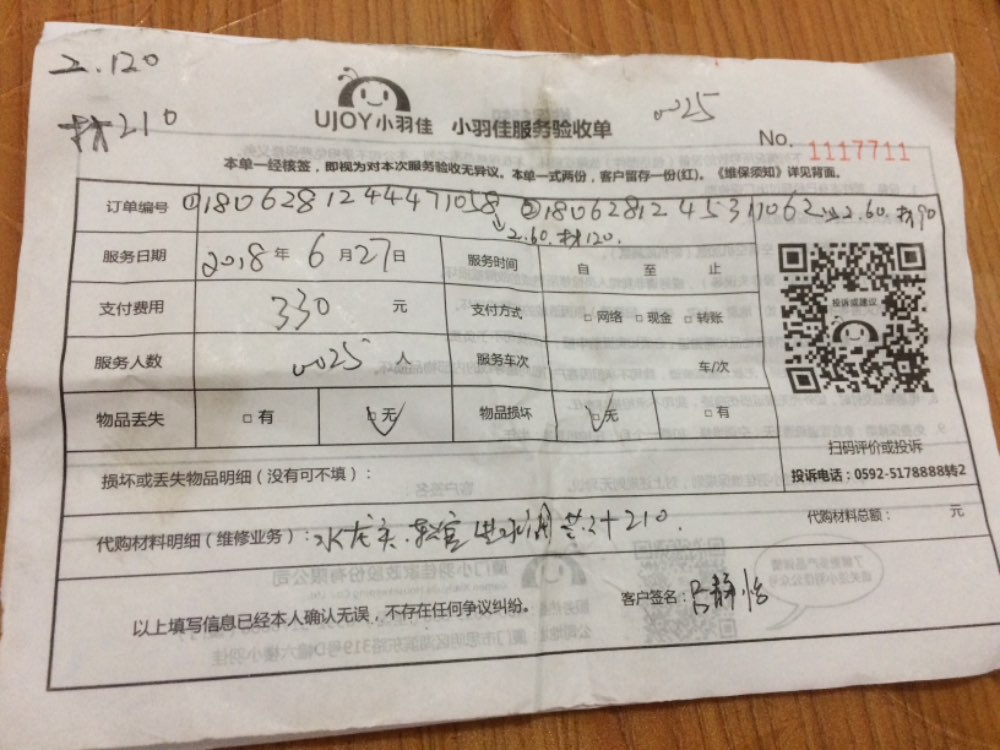 工.120
材210
0025
UJOY小羽佳 小羽佳服务验收单
No. 1117711
本单一经核签，即视为对本次服务验收无异议。本单一式两份，客户留存一份(红)。《维保须知》详见背面。
订单编号 ①1806281244471058 ②1806281245311062 工2.60.材90
工2.60.材120.
服务日期 2018年6月27日 服务时间 自 至 止
支付费用 330 元 支付方式 □网络 □现金 □转账
投诉或建议
服务人数 0025 人 服务车次 车/次
物品丢失 □有 □无 物品损坏 □无 □有
扫码评价或投诉
投诉电话：0592-5178888转2
损坏或丢失物品明细（没有可不填）：
代购材料明细（维修业务）：水龙头.软管 210.
代购材料总额： 元
客户签名：吕静怡
以上填写信息已经本人确认无误，不存在任何争议纠纷。